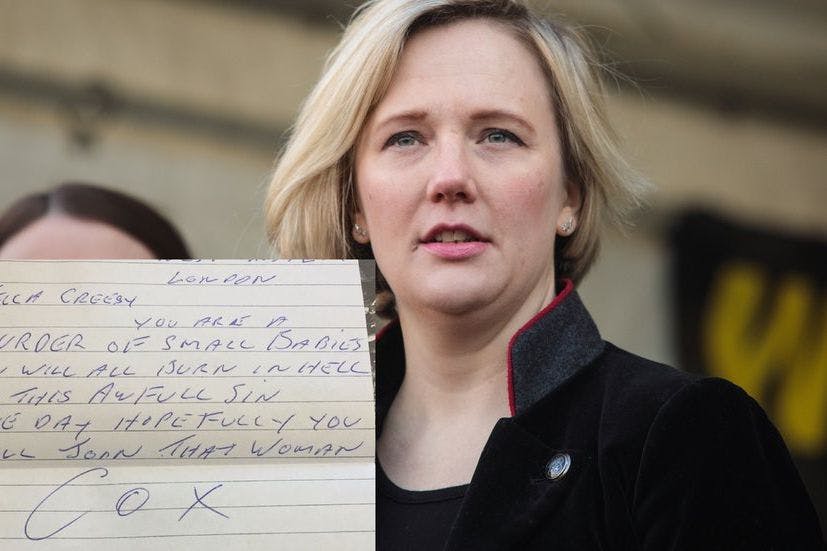 LONDON
ELLA CREESY
YOU ARE A
URDER OF SMALL BABIES
WILL ALL BURN IN HELL
THIS AWFULL SIN
E DAY HOPEFULLY YOU
LL JOIN THAT WOMAN
COX